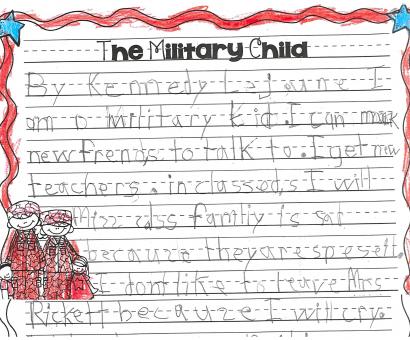 The Military Child
By Kennedy Lejaune I
am a military kid. I can
new frends to talk to. I get new
teachers. in classed,s I will
Miss familiy is sat
because they are speseil.
I dont like to leave Mrs
Rickett because I will cry.